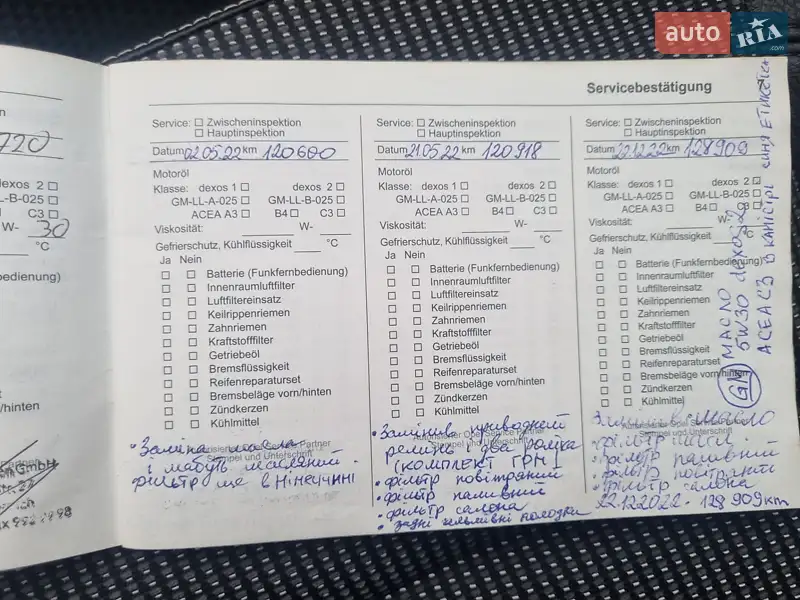 auto RIA .com
Servicebestätigung
7
n
720
dexos 2 ☐
LL-B-025 ☐
C3 ☐
W- 30
°C
bedienung)
/hinten
GmbH
Service: ☐ Zwischeninspektion
☐ Hauptinspektion
Datum 02.05.22 km 120600
Motoröl
Klasse: dexos 1 ☐ dexos 2 ☐
GM-LL-A-025 ☐ GM-LL-B-025 ☐
ACEA A3 ☐ B4 ☐ C3 ☐
Viskosität: W-
Gefrierschutz, Kühlflüssigkeit °C
Ja Nein
☐ ☐ Batterie (Funkfernbedienung)
☐ ☐ Innenraumluftfilter
☐ ☐ Luftfiltereinsatz
☐ ☐ Keilrippenriemen
☐ ☐ Zahnriemen
☐ ☐ Kraftstofffilter
☐ ☐ Getriebeöl
☐ ☐ Bremsflüssigkeit
☐ ☐ Reifenreparaturset
☐ ☐ Bremsbeläge vorn/hinten
☐ ☐ Zündkerzen
☐ ☐ Kühlmittel
Autorisierter Opel Service Partner
Stempel und Unterschrift
• Заміна масла
і мабуть масляний
фільтр ще в Німеччині
Service: ☐ Zwischeninspektion
☐ Hauptinspektion
Datum 21.05.22 km 120918
Motoröl
Klasse: dexos 1 ☐ dexos 2 ☐
GM-LL-A-025 ☐ GM-LL-B-025 ☐
ACEA A3 ☐ B4 ☐ C3 ☐
Viskosität: W-
Gefrierschutz, Kühlflüssigkeit °C
Ja Nein
☐ ☐ Batterie (Funkfernbedienung)
☐ ☐ Innenraumluftfilter
☐ ☐ Luftfiltereinsatz
☐ ☐ Keilrippenriemen
☐ ☐ Zahnriemen
☐ ☐ Kraftstofffilter
☐ ☐ Getriebeöl
☐ ☐ Bremsflüssigkeit
☐ ☐ Reifenreparaturset
☐ ☐ Bremsbeläge vorn/hinten
☐ ☐ Zündkerzen
☐ ☐ Kühlmittel
Autorisierter Opel Service Partner
Stempel und Unterschrift
• Замінив приводний
ремінь і два ролика
(комплект ГРМ)
• фільтр повітряний
• фільтр паливний
• фільтр салона
• задні гальмівні колодки
Service: ☐ Zwischeninspektion
☐ Hauptinspektion
Datum 22.12.22 km 128909
Motoröl
Klasse: dexos 1 ☐ dexos 2 ☐
GM-LL-A-025 ☐ GM-LL-B-025 ☐
ACEA A3 ☐ B4 ☐ C3 ☐
Viskosität: W-
Gefrierschutz, Kühlflüssigkeit °C
Ja Nein
☐ ☐ Batterie (Funkfernbedienung)
☐ ☐ Innenraumluftfilter
☐ ☐ Luftfiltereinsatz
☐ ☐ Keilrippenriemen
☐ ☐ Zahnriemen
☐ ☐ Kraftstofffilter
☐ ☐ Getriebeöl
☐ ☐ Bremsflüssigkeit
☐ ☐ Reifenreparaturset
☐ ☐ Bremsbeläge vorn/hinten
☐ ☐ Zündkerzen
☐ ☐ Kühlmittel
Autorisierter Opel Service Partner
Stempel und Unterschrift
масло
фільтр
• фільтр паливний
• фільтр повітряний
• фільтр салона
22.12.2022 · 128 909 km
GM МАСЛО
5W30 dexos 2
ACEA C3 в каністрі